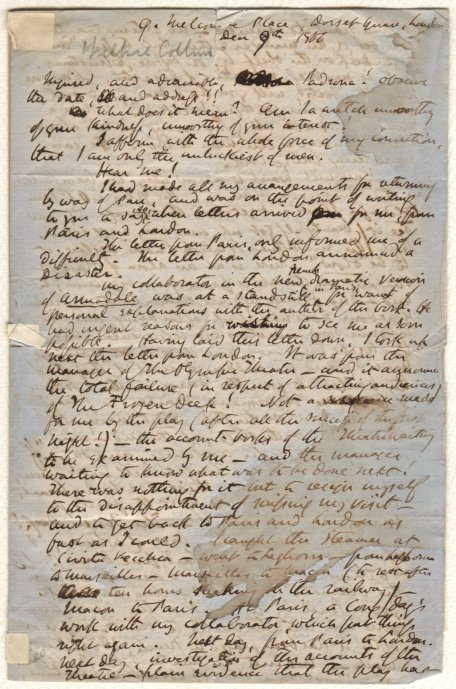 9. Melcombe Place, Dorset Square, London
Dec 9th 1866
Wilkie Collins
Injured, and admirable, Padrona! observe
the date, and address!!
What does it mean? Am I a wretch unworthy
of your kindness, unworthy of your interest.
I affirm with the whole force of my conviction,
that I am only the unluckiest of men.
Hear me!
I had made all my arrangements for returning
by way of Pisa, and was on the point of writing
to you to say so, when letters arrived for me from
Paris and London.
The letter from Paris, only informed me of a
difficulty. The letter from London announced a
disaster.
My collaborator in the new French dramatic version
of Armadale was at a standstill for want of
personal explanations with the author of the book. He
had urgent reasons for wishing to see me as soon as
possible. Having laid this letter down, I took up
next the letter from London. It was from the
manager of the Olympic Theatre – and it announced
the total failure (in respect of attracting audiences)
of The Frozen Deep! Not a sixpence made
for me by the play (after all the success of the first
night!) – the account-books of the Theatre waiting
to be examined by me – and the manager
waiting to know what was to be done next!
There was nothing for it but to resign myself
to the disappointment of missing my visit –
and to get back to Paris and London as
fast as I could. I caught the steamer at
Civita Vecchia – went to Leghorn – from Leghorn
to Marseilles – Marseilles to Macon (to rest after
ten hours shaking in the railway) –
Macon to Paris. At Paris, a long day's
work with my collaborator which put things
right again. Next day, from Paris to London.
Next day, investigation of the accounts of the
Theatre – plain evidence that the play has